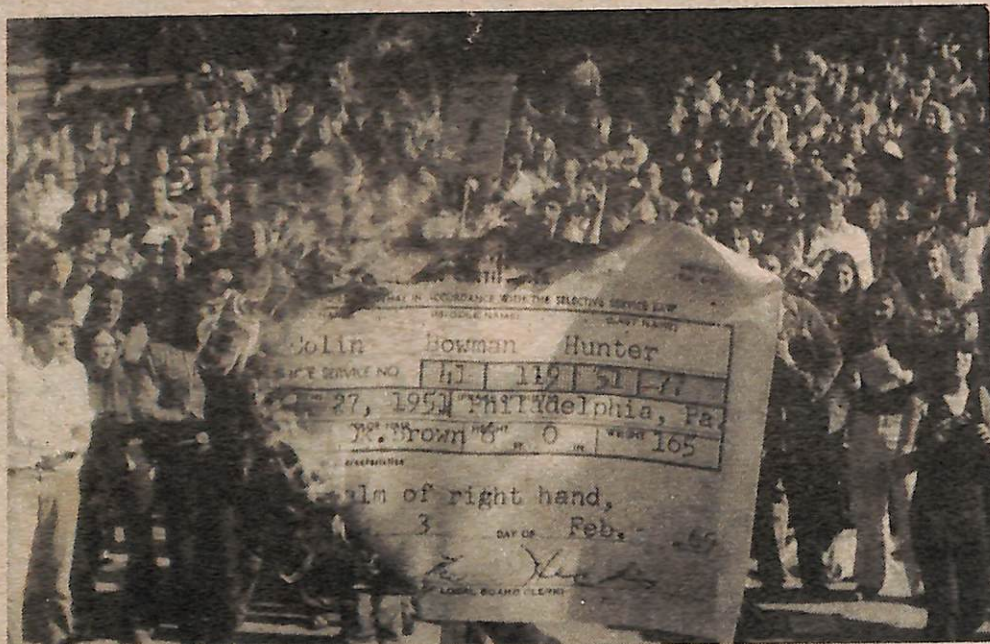 THAT IN ACCORDANCE WITH THE SELECTIVE SERVICE LAW
(MIDDLE NAME) (LAST NAME)
Colin Bowman Hunter
SERVICE NO. 41 119 51
27, 1951 Philadelphia, Pa.
Brown 6 FT. 0 IN. WEIGHT 165
alm of right hand,
3 DAY OF Feb. 69
LOCAL BOARD CLERK